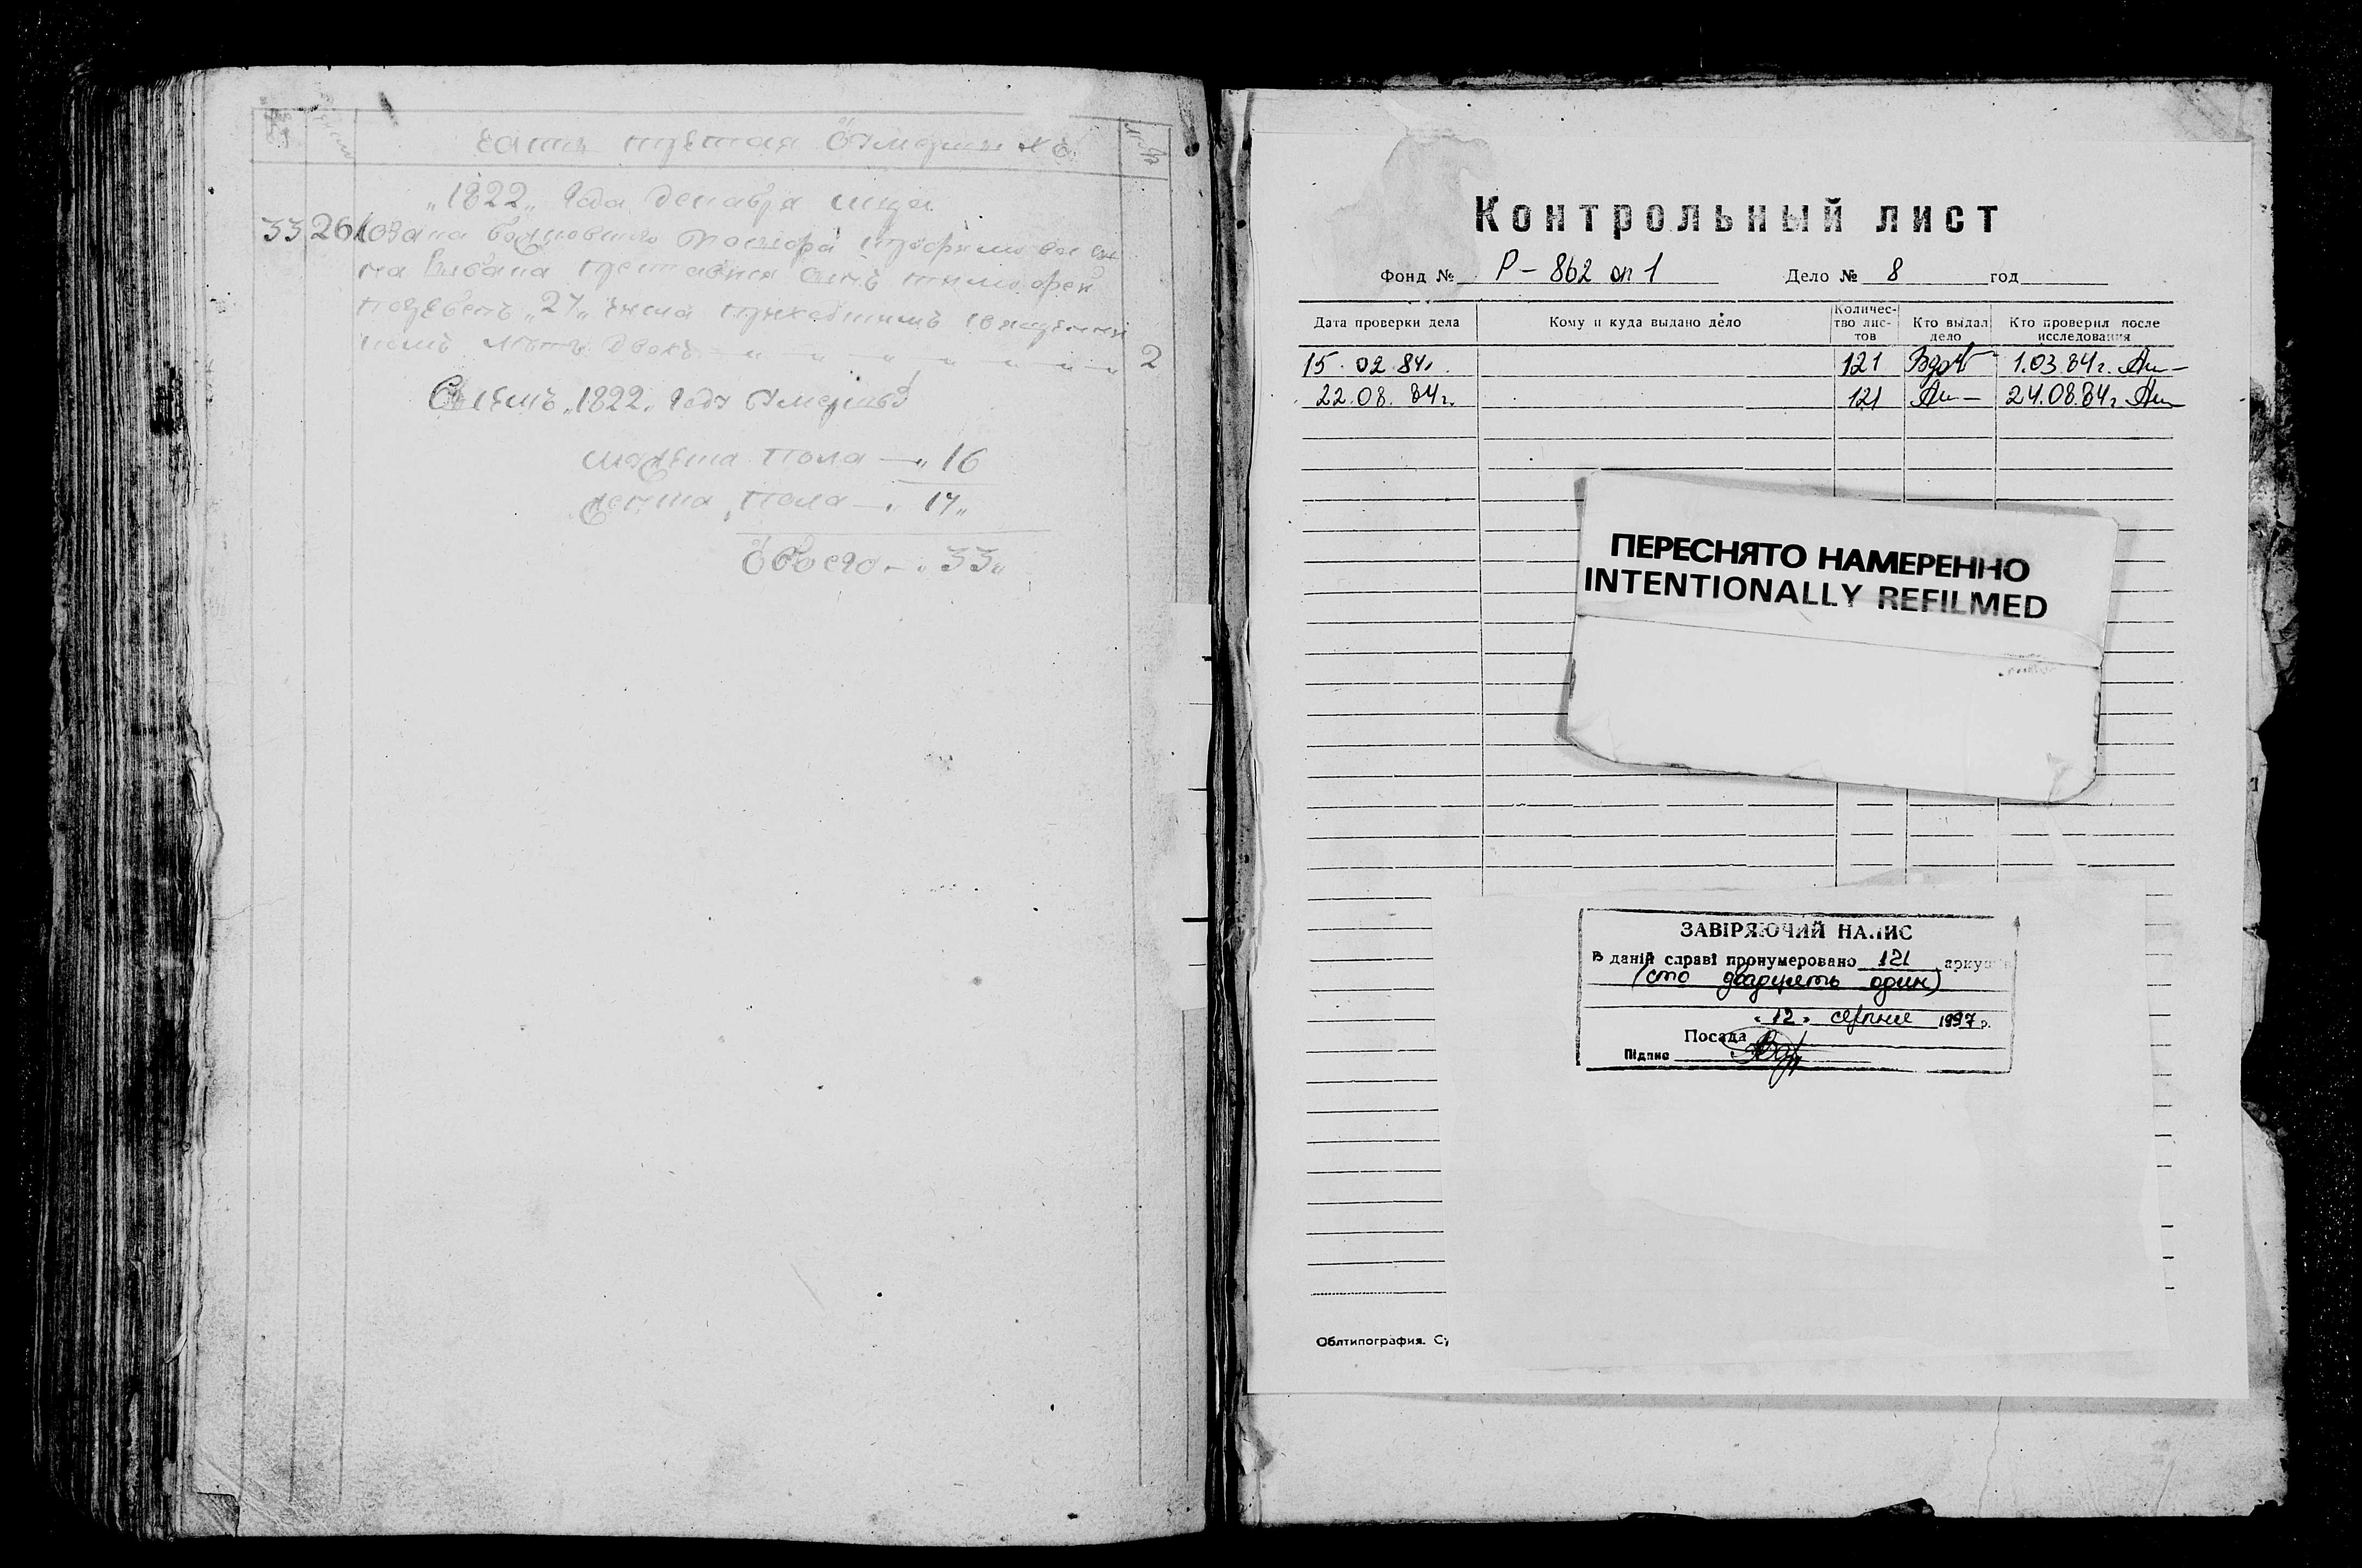 часть третая Ѿмершихъ
„1822„ года декабря мца
33 26 Козака
преставися сынъ тимофей
погребенъ „27„ числа приходскимъ священни
комъ летъ двохъ 2
Всемъ „1822„ году Умершъ
мужеска пола — „ 16
женска пола — „ 17„
Ѿбоего — „ 33„
Контрольный лист
Фонд № Р-862 оп 1 Дело № 8 год
Дата проверки дела Кому и куда выдано дело Количес-тво лис-тов Кто выдал дело Кто проверил после исследования
15.02.84г. 121 1.03.84г.
22.08.84г. 121 24.08.84г.
ПЕРЕСНЯТО НАМЕРЕННО
INTENTIONALLY REFILMED
ЗАВІРЯЮЧИЙ НАПИС
В даній справі пронумеровано 121 аркушів
(сто двадцять один)
„12„ серпня 1997 р.
Посада
Підпис
Облтипография.